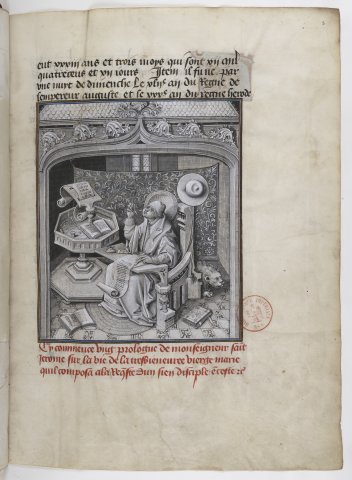 eut xxxiii ans et trois moys qui sont xii mil
quatrecens et vii iours Item il fu ne par
vne nuyt de dimenche Le xlii an du Regne de
lempereur auguste et le xxx an du regne herode
Cy commence vng prologue de monseigneur saint
Jerome sur la vie de la tresbieneuree vierge marie
quil composa a la Req̃ste dun sien disciple